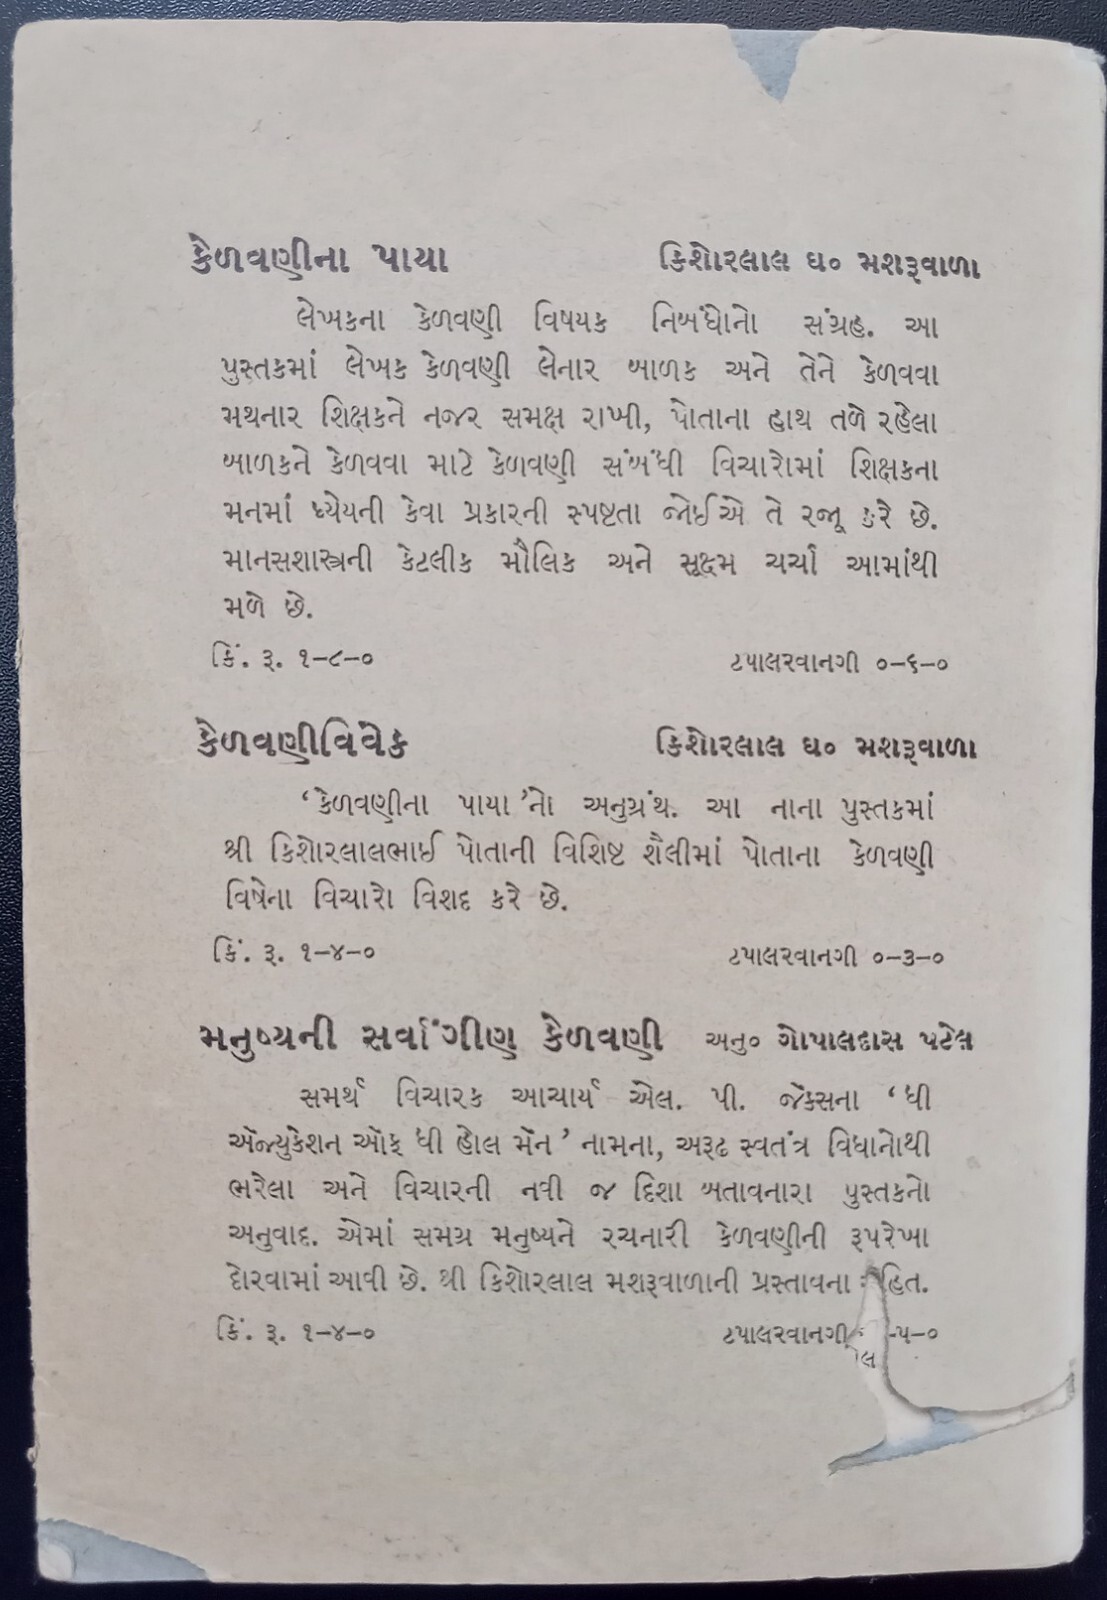 કેળવણીના પાયા કિશોરલાલ ઘ૦ મશરૂવાળા
લેખકના કેળવણી વિષયક નિબંધોનો સંગ્રહ. આ
પુસ્તકમાં લેખક કેળવણી લેનાર બાળક અને તેને કેળવવા
મથનાર શિક્ષકને નજર સમક્ષ રાખી, પોતાના હાથ તળે રહેલા
બાળકને કેળવવા માટે કેળવણી સંબંધી વિચારોમાં શિક્ષકના
મનમાં ધ્યેયની કેવા પ્રકારની સ્પષ્ટતા જોઈએ તે રજૂ કરે છે.
માનસશાસ્ત્રની કેટલીક મૌલિક અને સૂક્ષ્મ ચર્ચા આમાંથી
મળે છે.
કિં. રૂ. ૧–૮–૦ ટપાલરવાનગી ૦–૬–૦
કેળવણીવિવેક કિશોરલાલ ઘ૦ મશરૂવાળા
‘કેળવણીના પાયા’નો અનુગ્રંથ. આ નાના પુસ્તકમાં
શ્રી કિશોરલાલભાઈ પોતાની વિશિષ્ટ શૈલીમાં પોતાના કેળવણી
વિષેના વિચારો વિશદ કરે છે.
કિં. રૂ. ૧–૪–૦ ટપાલરવાનગી ૦–૩–૦
મનુષ્યની સર્વાંગીણ કેળવણી અનુ૦ ગોપાલદાસ પટેલ
સમર્થ વિચારક આચાર્ય એલ. પી. જૅક્સના ‘ધી
ઍજ્યુકેશન ઑફ ધી હોલ મૅન’ નામના, અરૂઢ સ્વતંત્ર વિધાનોથી
ભરેલા અને વિચારની નવી જ દિશા બતાવનારા પુસ્તકનો
અનુવાદ. એમાં સમગ્ર મનુષ્યને રચનારી કેળવણીની રૂપરેખા
દોરવામાં આવી છે. શ્રી કિશોરલાલ મશરૂવાળાની પ્રસ્તાવના
કિં. રૂ. ૧–૪–૦ ટપાલરવાનગી –૫–૦